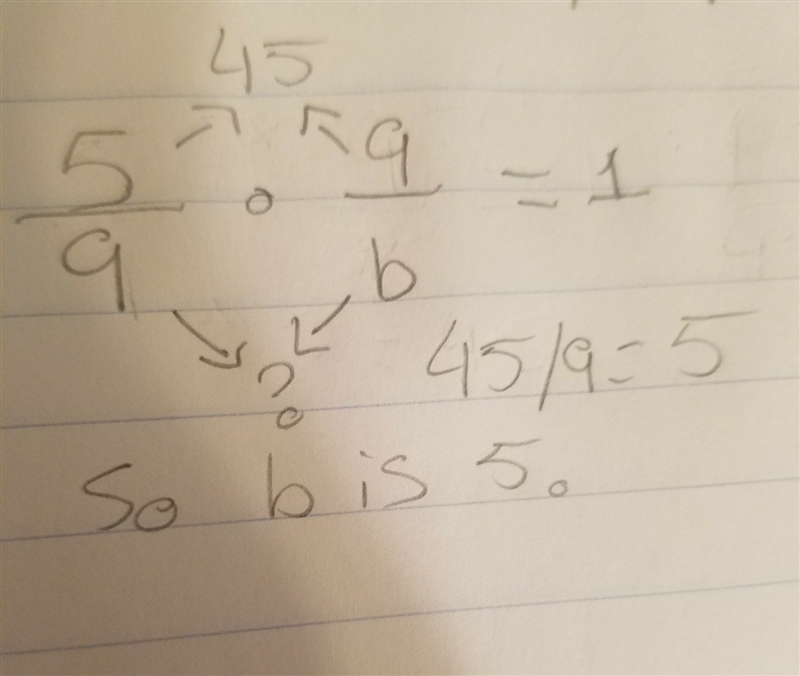 45
5/9 · 9/b = 1
?
45/9=5
So b is 5.